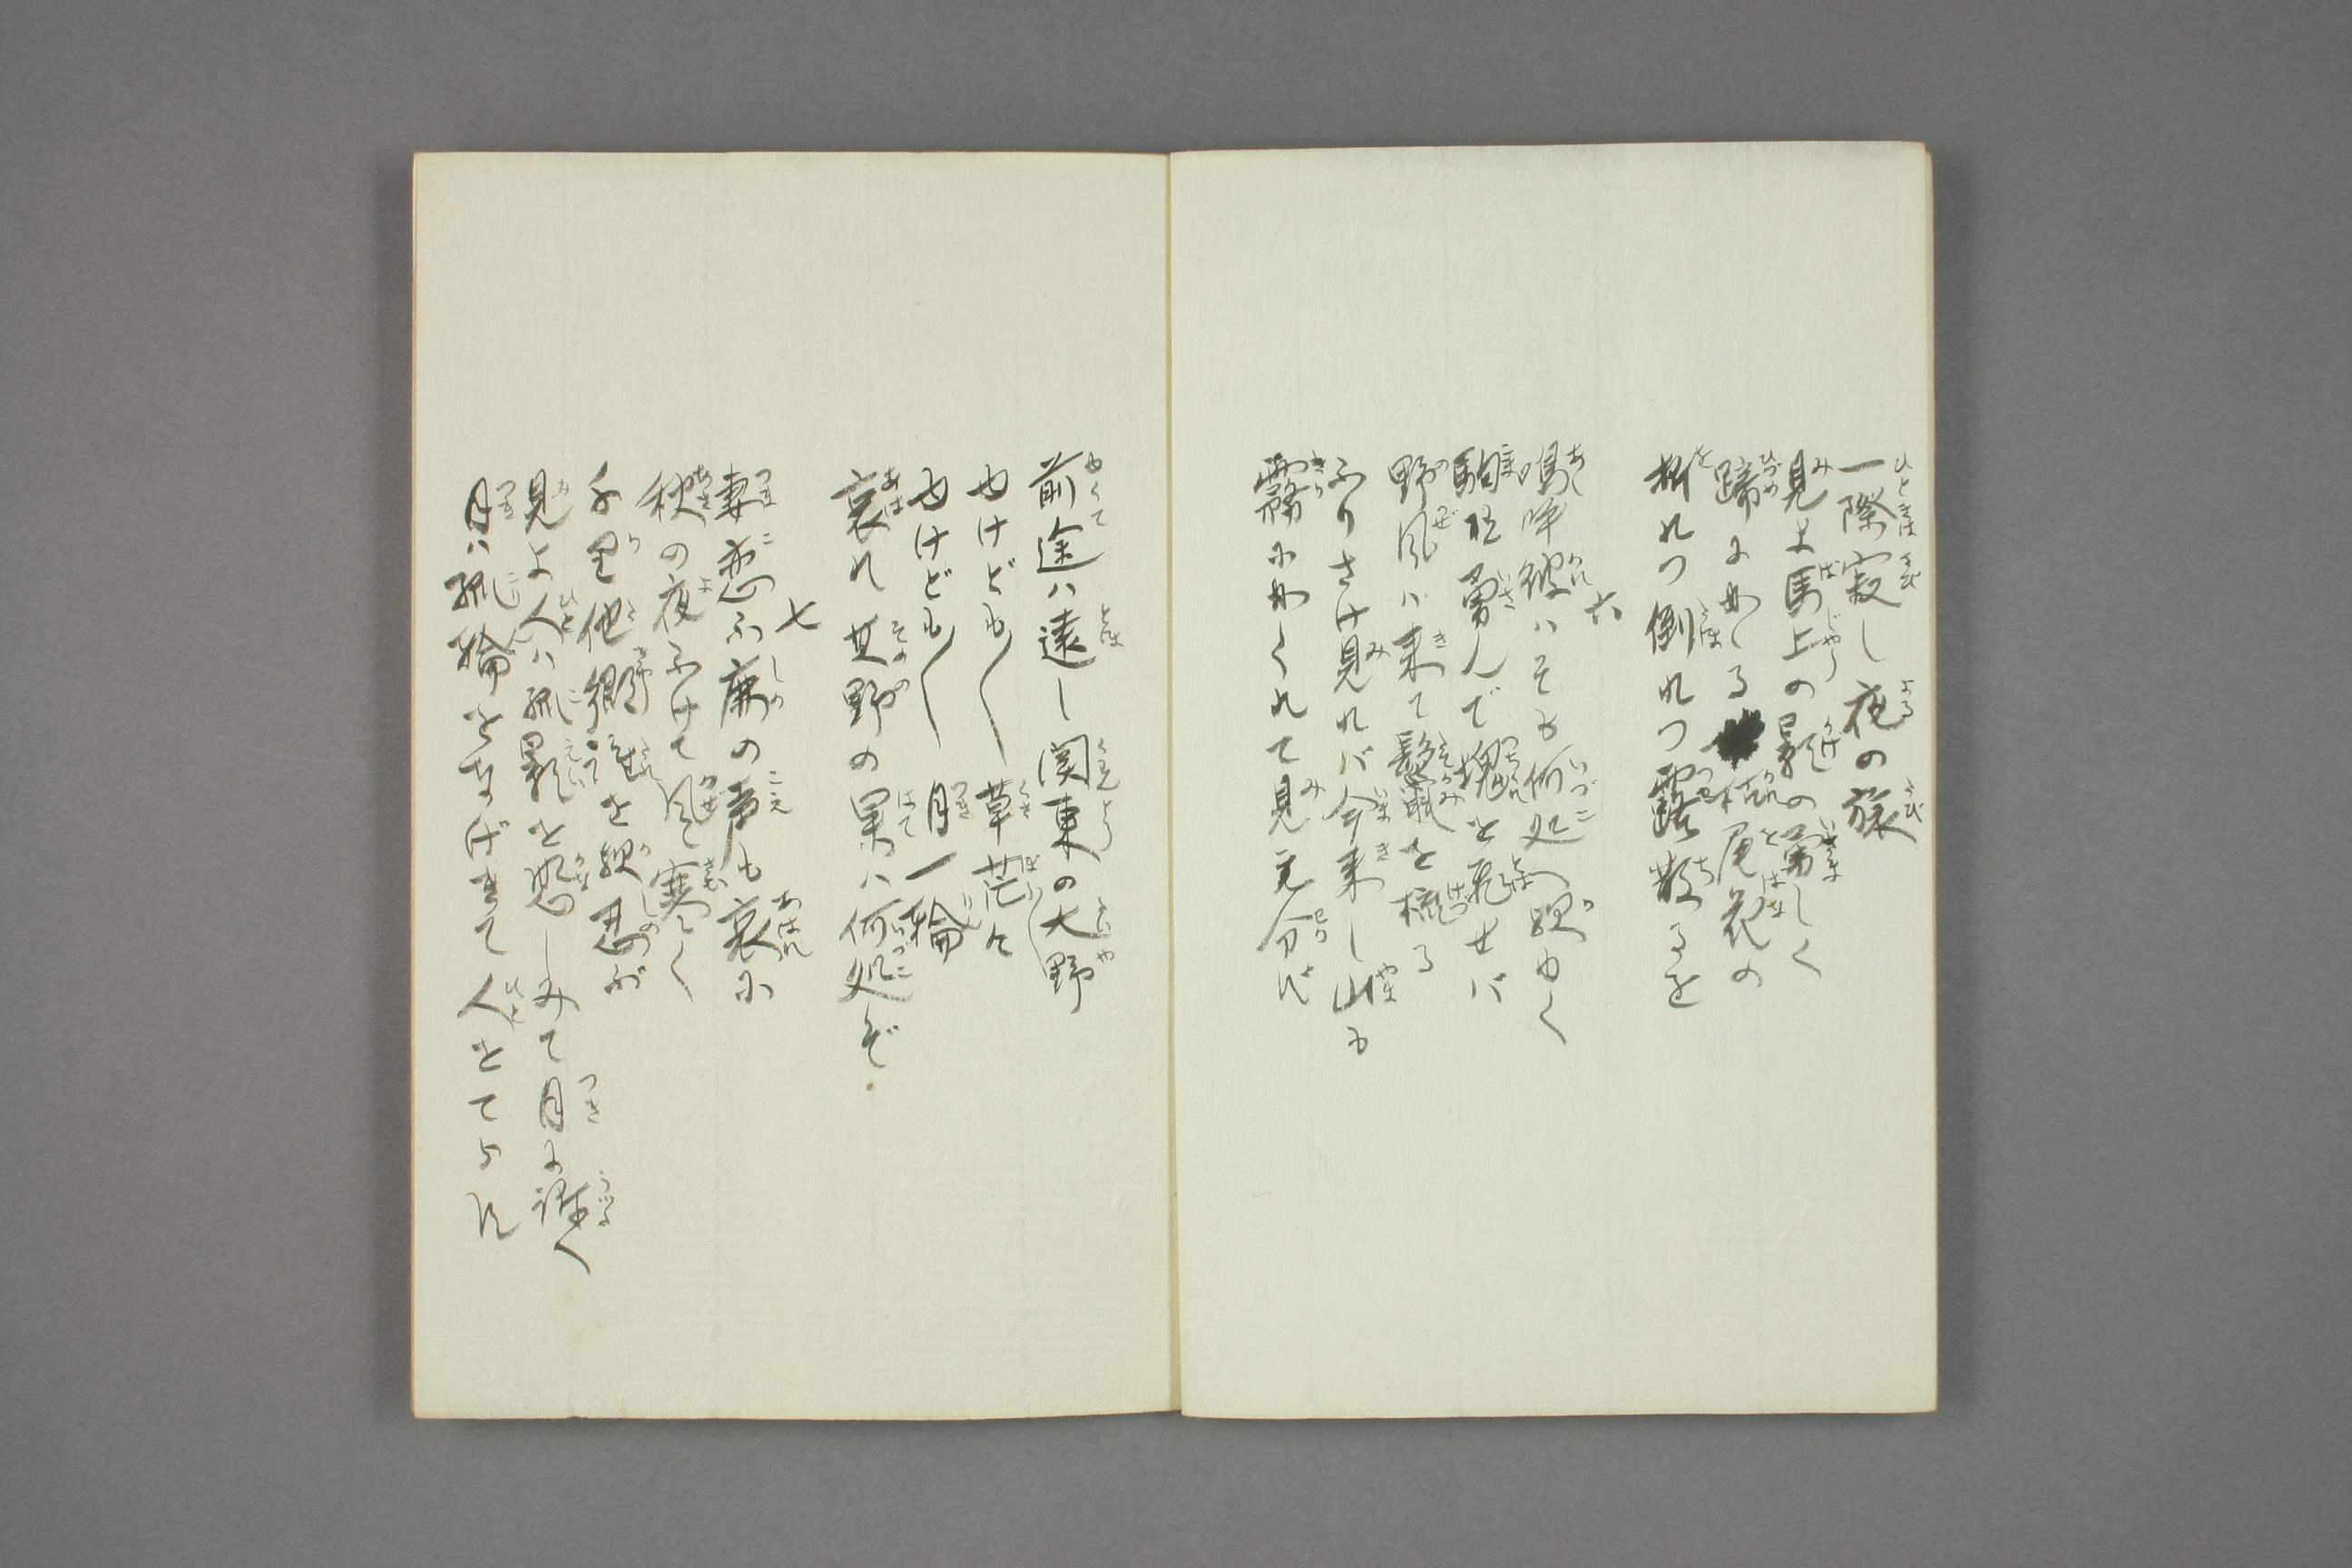 一際寂し夜の旅
見よ馬上の影の勇しく
蹄にかゝる枯尾花の
折れつ倒れつ露散るを
六
嗚呼彼ハそも何処へ䠖ゆく
駒ハ勇んで塊を飛せバ
野風ハ来て鬢を梳る
ふりさけ見れバ今来し山も
霧にかくれて見え分ず
前途ハ遠し関東の大野
ゆけども〱草茫々
ゆけども〱月一輪
哀れ其野の果ハ何処ぞ
七
妻恋ふ鹿の声も哀に
秋の夜ふけて風寒く
千里他郷誰を忍ぶ
見よ人ハ孤影を悲しみて月に嘆く
月ハ孤輪をなげきて人をてらす